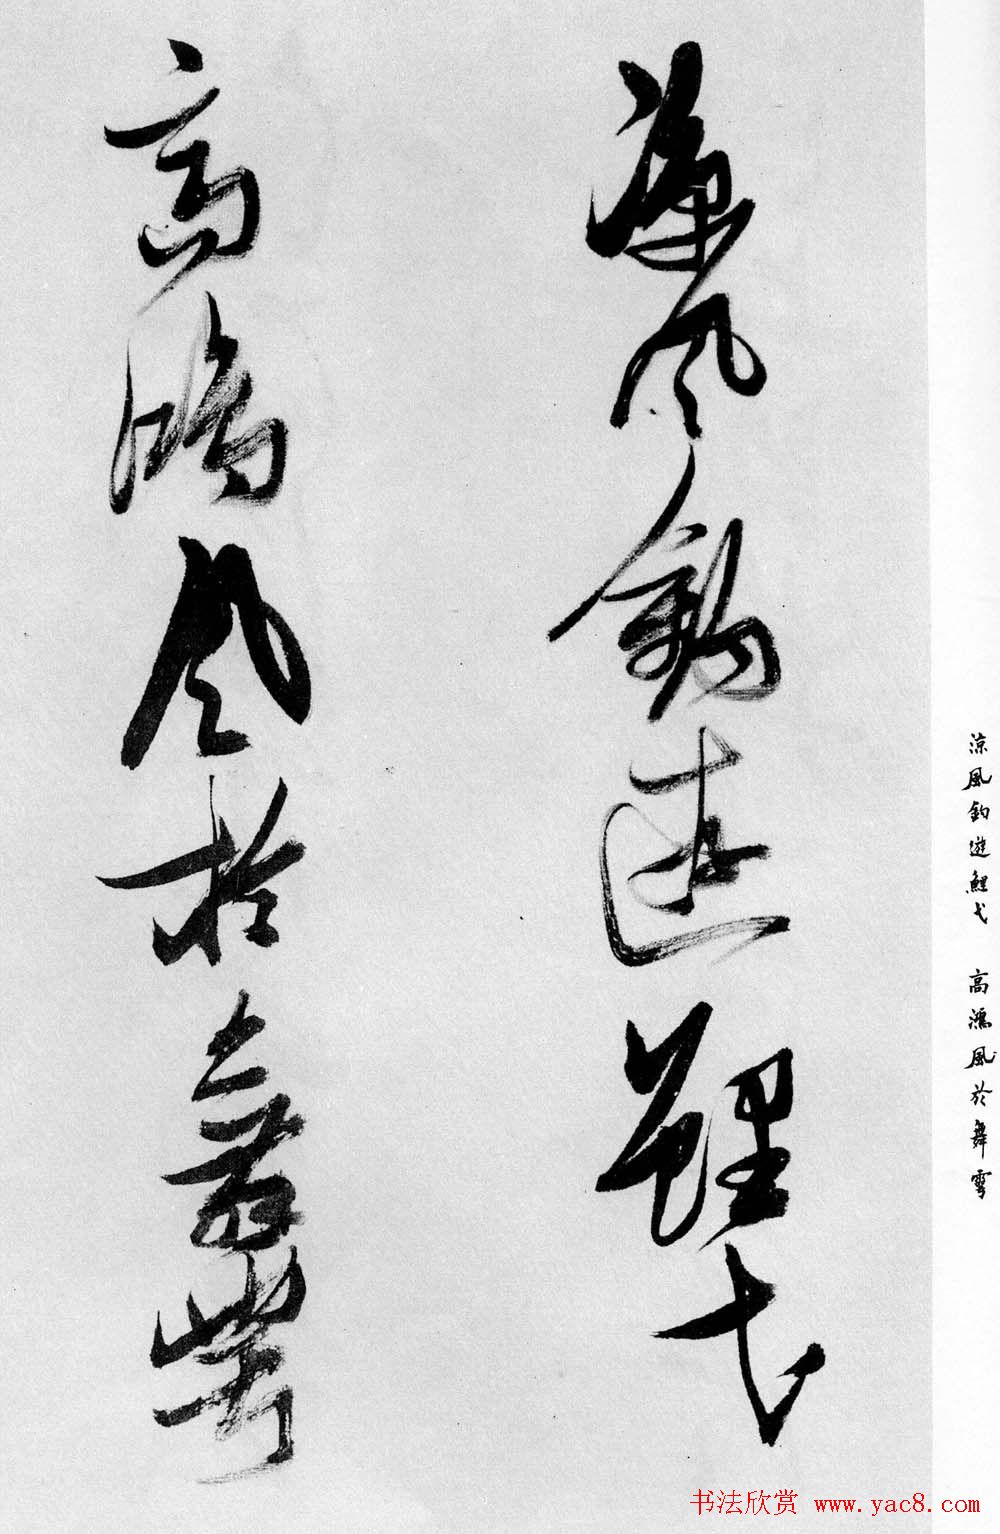 涼風釣遊鯉弋
高鴻風於舞雩
涼風釣遊鯉弋　高鴻風於舞雩
书法欣赏 www.yac8.com